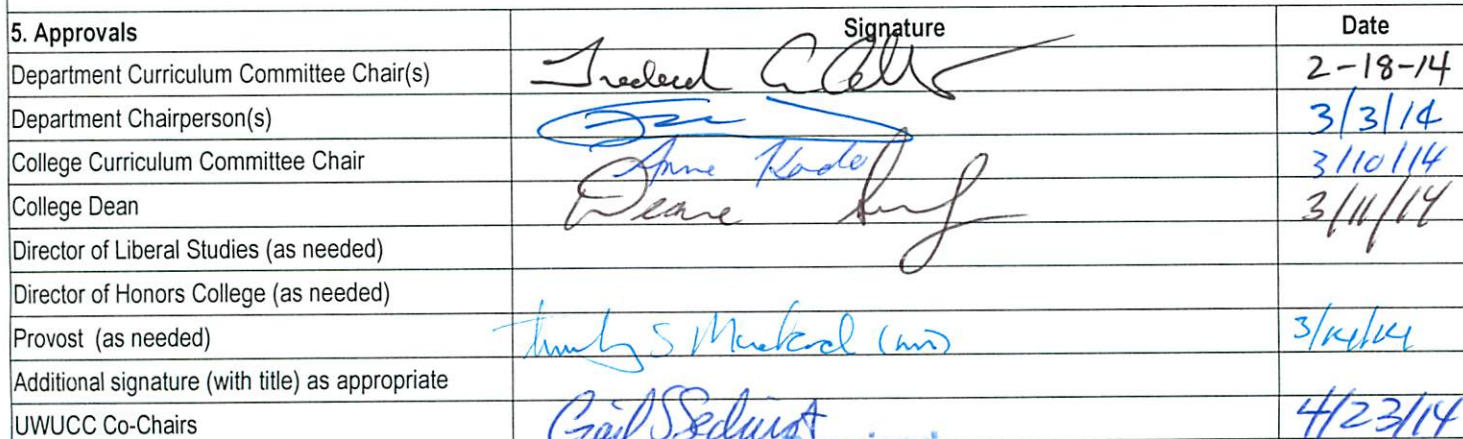 5. Approvals Signature Date
Department Curriculum Committee Chair(s) 2-18-14
Department Chairperson(s) 3/3/14
College Curriculum Committee Chair Anne 3/10/14
College Dean 3/11/14
Director of Liberal Studies (as needed)
Director of Honors College (as needed)
Provost (as needed) S 3/14/14
Additional signature (with title) as appropriate
UWUCC Co-Chairs Gail S Sechrist 4/23/14